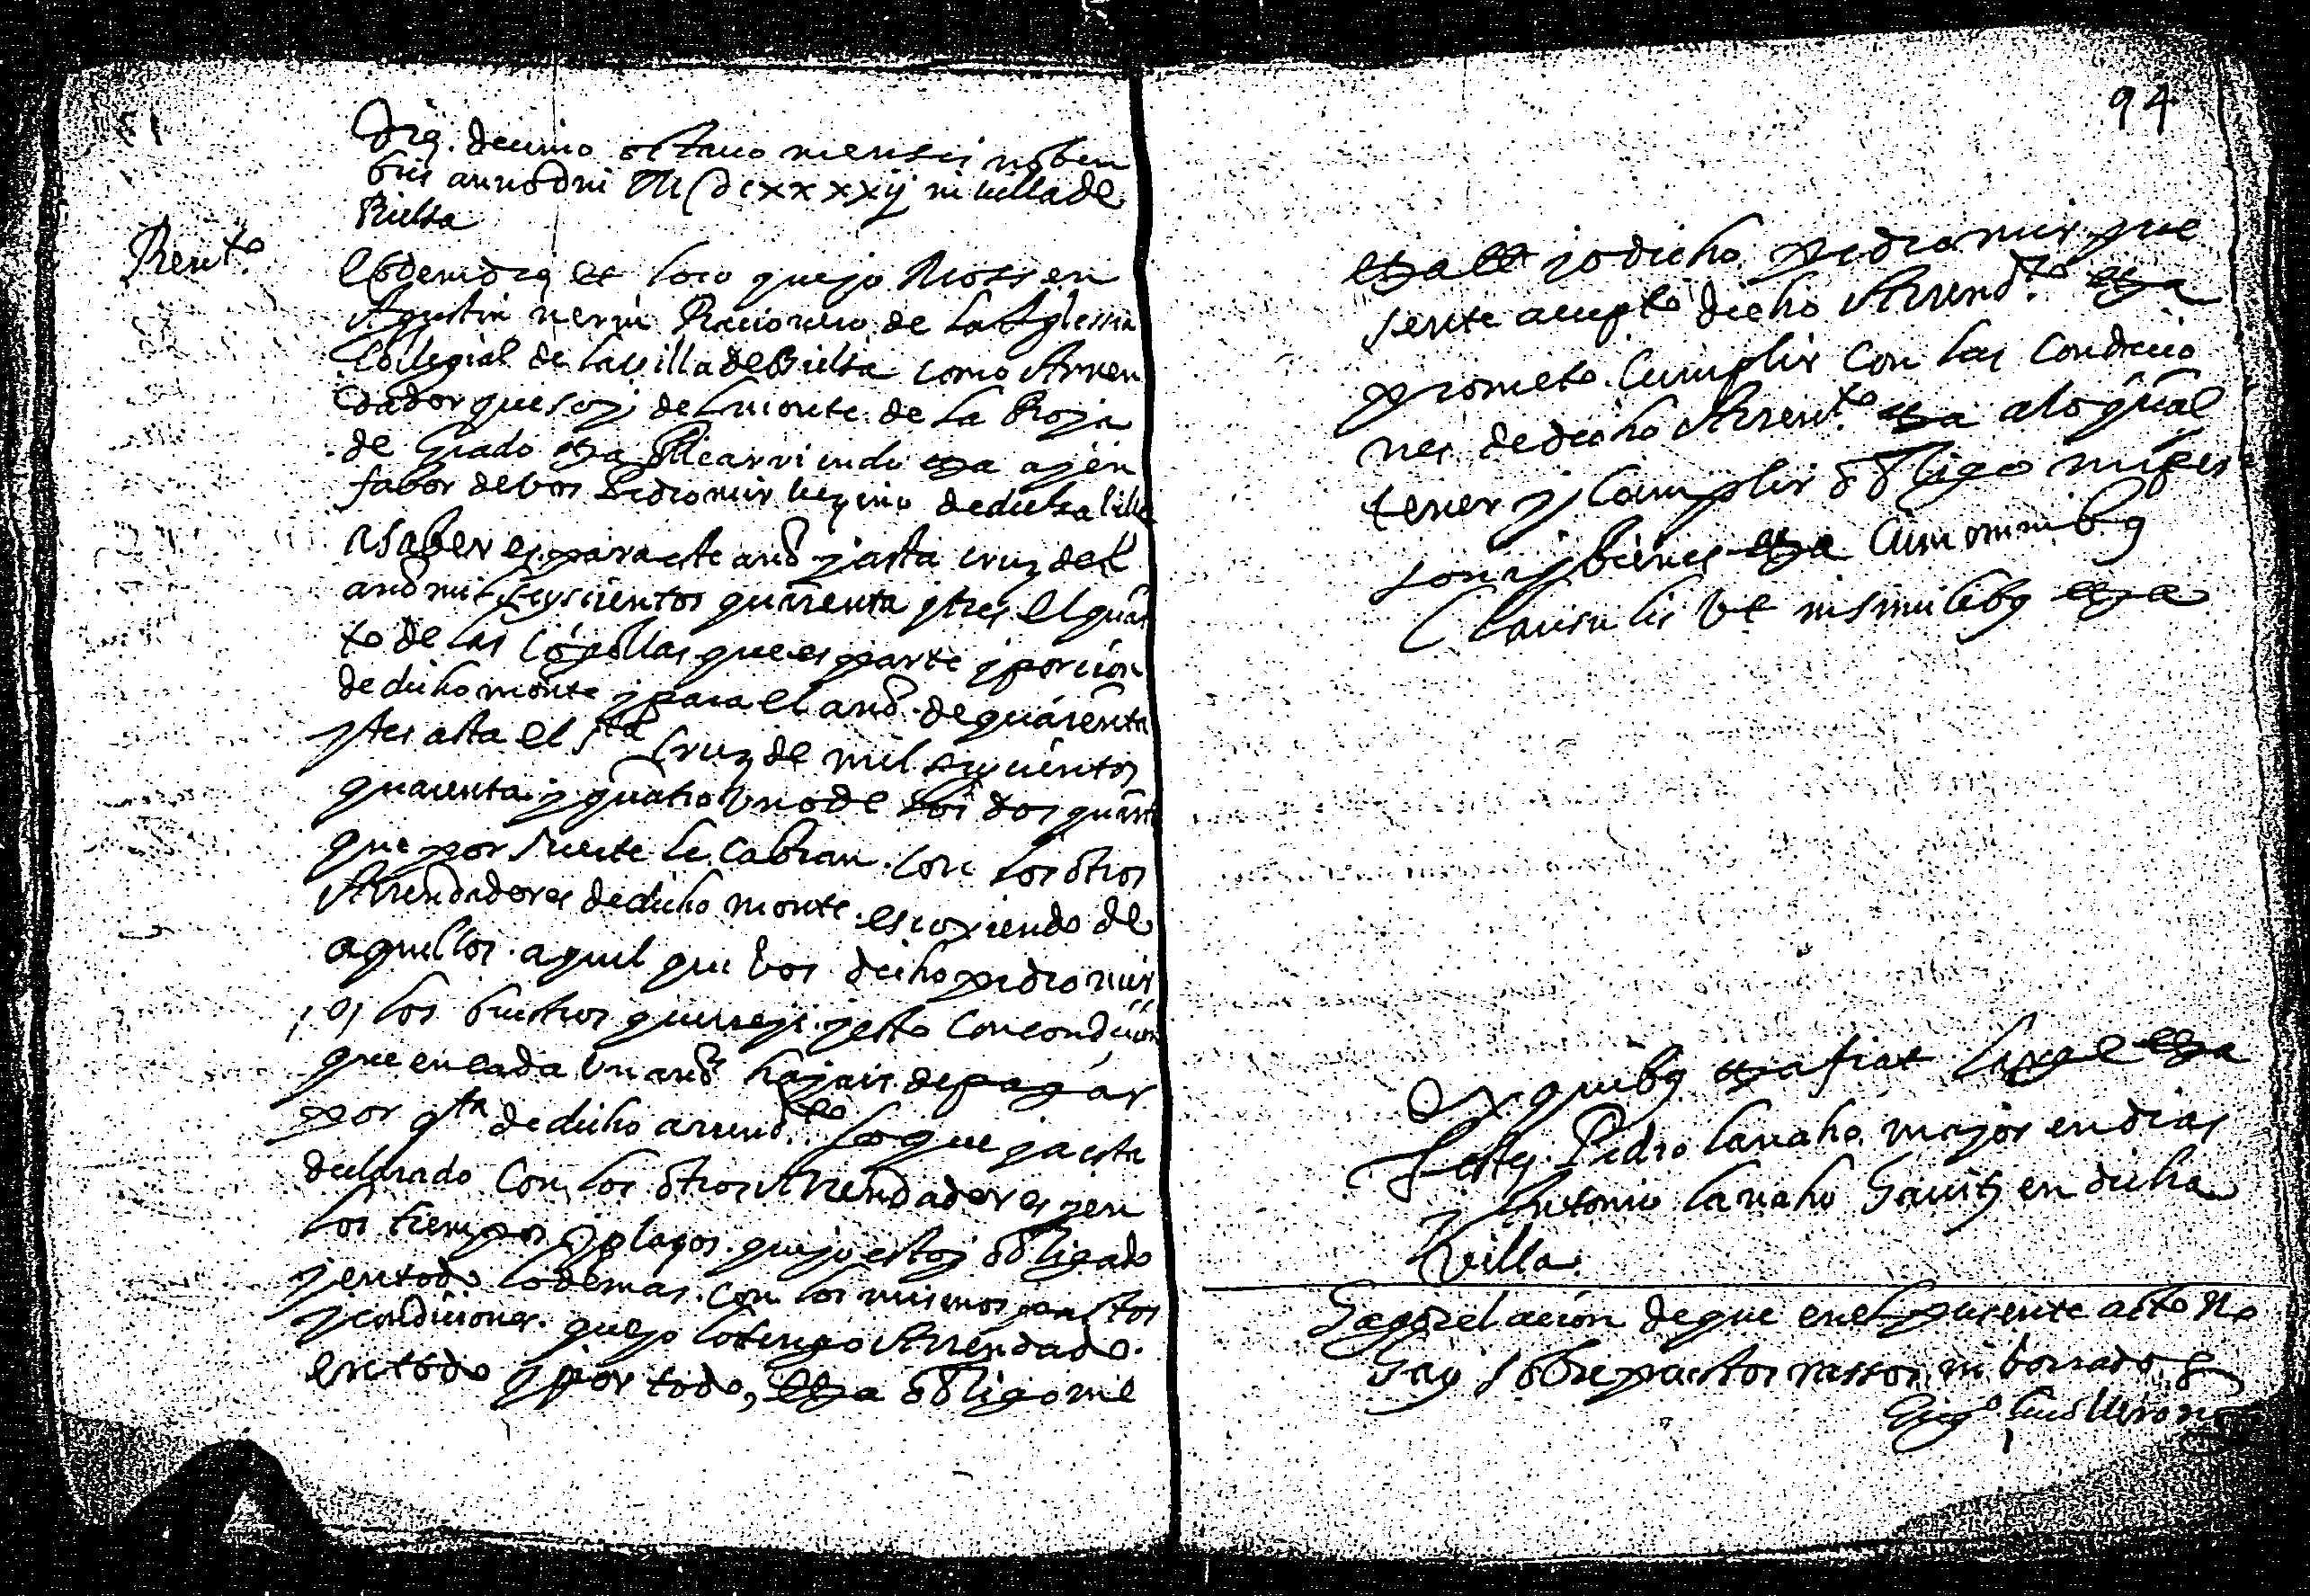 Die decimo octauo mensis nobem
bris anno dni M Dcxxxxij in villa de
Bielsa
Rent.to
Eodem die et loco que jo Mossen
Agustin nerin Racionero de la Iglessia
Collegial de la villa de Bielsa como Arren
dador que soy del monte de la Poja
de Grado etza Rearriendo etza a y en
fabor de bos Pedro mir vezino de dicha billa
a saber es para este año y asta cruz del
año mil seyscientos quarenta y tres el quar
to de las que es parte y porcion
de dicho monte y para el año de quarenta
y tres asta el sta cruz de mil seyscientos
quarenta y quatro vno de los dos quartos
que por suerte le cabran con los otros
Arrendadores de dicho monte escoxiendo de
aquellos aquel que bos dicho pedro mir
o los buestros querreys y esto con condicion
que en cada vn año hajais de pagar
por qta de dicho arrend.to lo que ja esta
declarado con los otros Arrendadores y en
los tiempos y plaços que jo estoj obligado
y en todo lo demas con los mismos pactos
y condiciones que jo lo tengo Arrendado
en todo y por todo, etza obligome
94
etza et jo dicho pedro mir pre
sente acepto dicho Arrend.to etza
prometo cumplir con las condicio
nes de dicho Arren.to etza a lo qual
tener y cumplir obligo mi per
sona y bienes etza cum omnibus
clausulis vt in similibus etza
Ex quibus etza fiat large etza
Testes Pedro lanaho major en dias
y Antonio lanaho hauits en dicha
villa
Hago relacion de que en el presente acto no
hay sobrepuestos rassos ni borrados